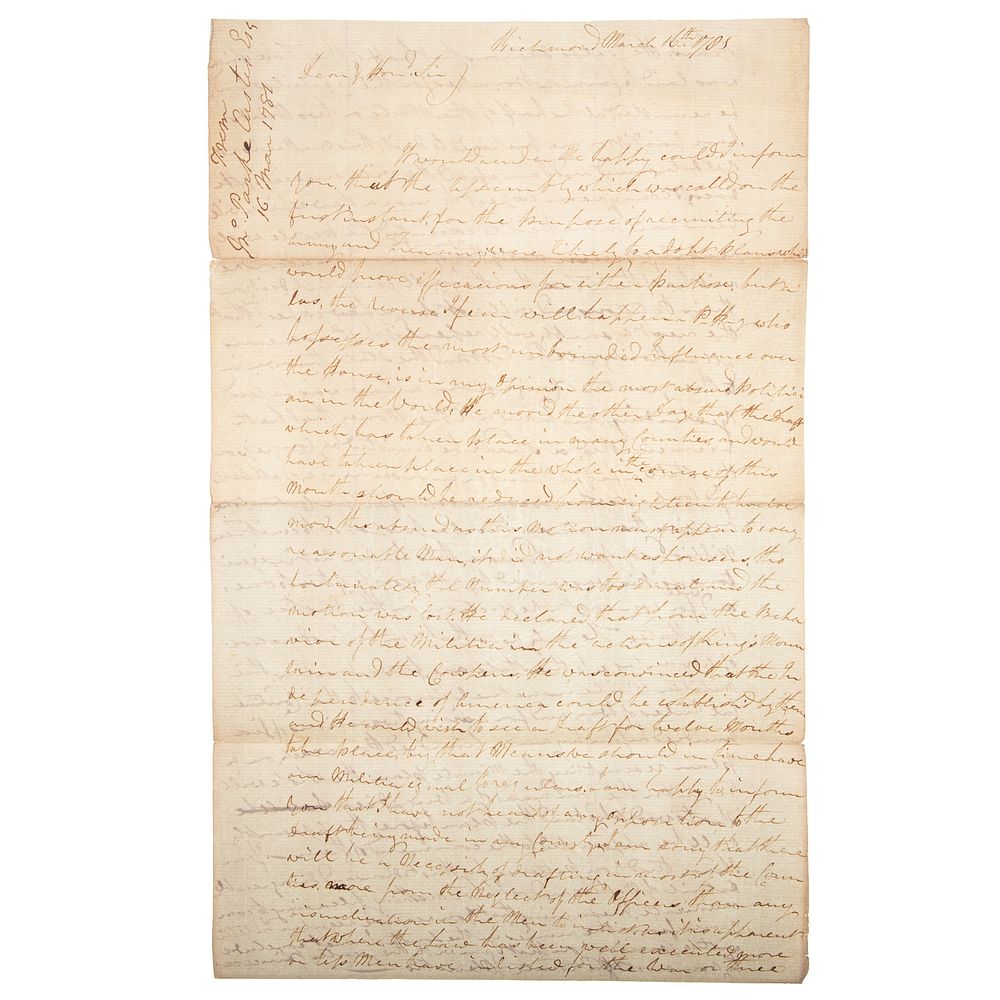 From
Jno Parke Custis Esq
16 Mar 1781
Richmond March 16th 1781
Dear & Hond Sir
It would render Me happy could I inform
you, that the Assembly which was called on the
first instant, for the purpose of recruiting the
Army and Treasury, were likely to adopt plans whi
would prove effecacious for either purpose, but a
las, the reverse I fear will happen. P. H y who
possesses the most unbounded Influence over
the House, is in my Opinion the most absurd Politici
an in the World, He moved the other Day, that the Draft
which has taken place in many Counties, and would
have taken place in the whole in the course of this
Month should be reduced from eighteen to twelve
months absurd as this Motion may appear to every
reasonable Man, it did not want espousers, tho
fortunately the Number was too small, and the
motion was lost, He declared that from the Beha
vior of the Militia in the actions of King's Moun
tain and the Cowpens, He was convinced that the In
dependence of America could be establish'd by them
and He could wish to see a Draft for twelve Months
take place, by that Means we should in time have
our Militia equal to regulars. I am happy to inform
you that I have not heard of any opposition to the
draft being made in any County, I am sorry that there
will be a Necessity of drafting in most of the Coun
ties, more from the Neglect of the Officers, than any
disinclination in the Men to inlist as it is apparent
that where the Law has been well executed more
or less Men have inlisted for the War or three